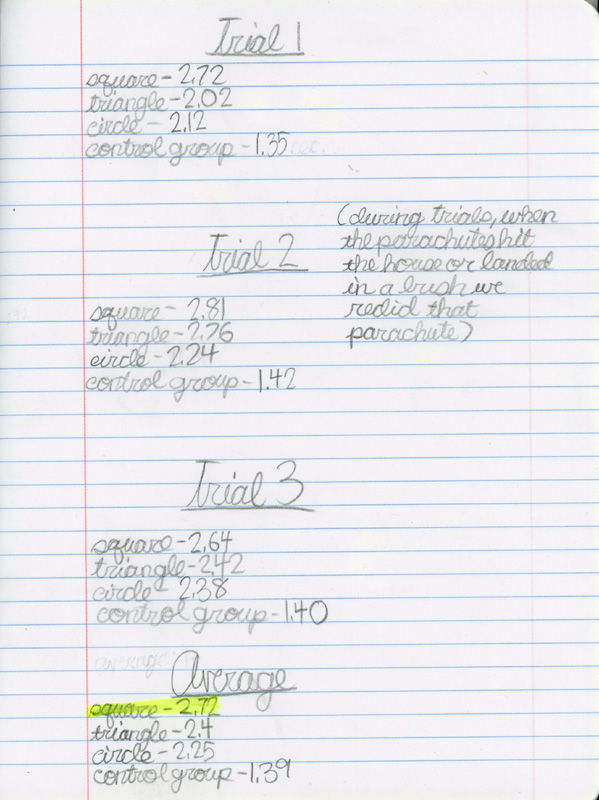 Trial 1
square - 2.72
triangle - 2.02
circle - 2.12
control group - 1.35 sec.
(during trials, when
the parachutes hit
the house or landed
in a bush we
redid that
parachute)
Trial 2
square - 2.81
triangle - 2.76
circle - 2.24
control group - 1.42
Trial 3
square - 2.64
triangle - 2.42
circle - 2.38
control group - 1.40
average
Average
square - 2.72
triangle - 2.4
circle - 2.25
control group - 1.39